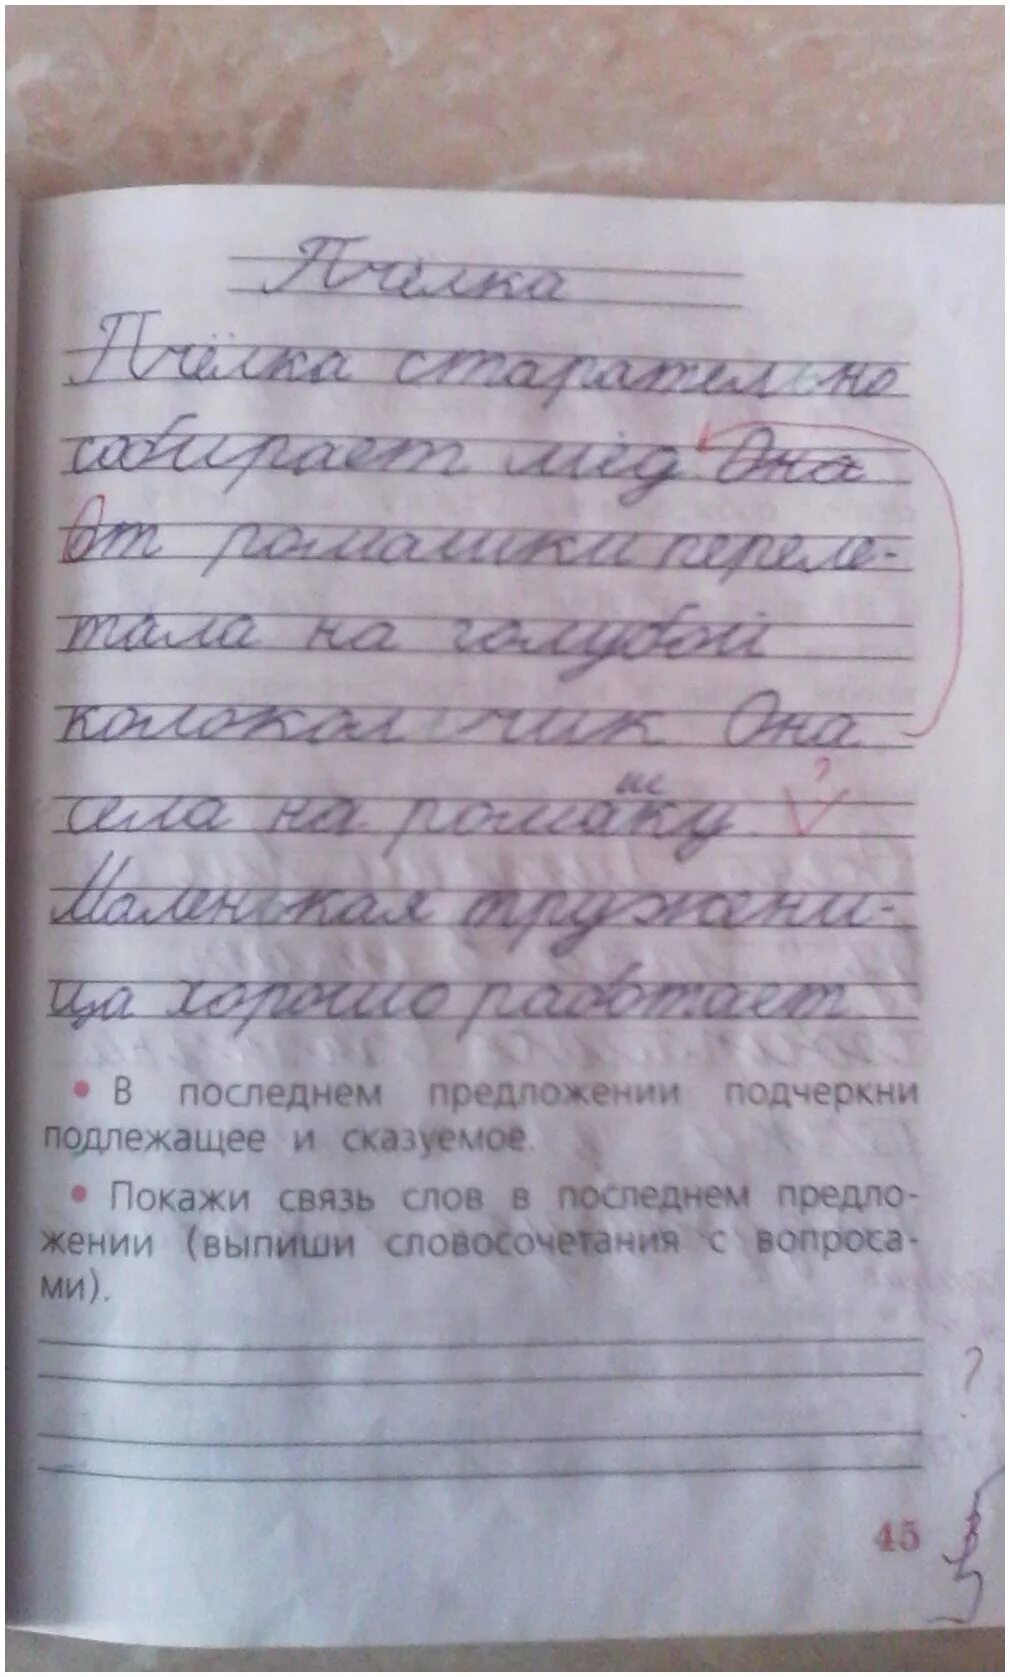 Пчёлка
Пчёлка старательно
собирает мёд Она
От ромашки переле-
тала на голубой
колокольчик. Она
села на ромаку.
ш
?
Маленькая тружени-
ца хорошо работает.
• В последнем предложении подчеркни
подлежащее и сказуемое.
• Покажи связь слов в последнем предло-
жении (выпиши словосочетания с вопроса-
ми).
?
45